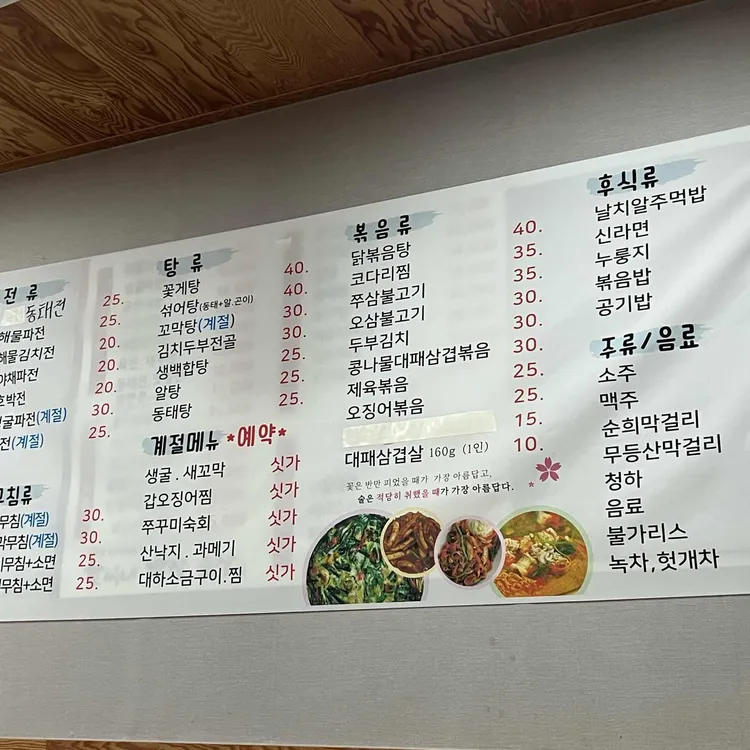 전 류
동태전 25.
해물파전 25.
해물김치전 20.
야채파전 20.
호박전 20.
굴파전(계절) 30.
전(계절) 25.
무침(계절) 30.
무침(계절) 30.
무침+소면 25.
무침+소면 25.
탕 류
꽃게탕 40.
섞어탕(동태+알.곤이) 40.
꼬막탕(계절) 30.
김치두부전골 30.
생백합탕 25.
알탕 25.
동태탕 25.
계절메뉴 *예약*
생굴 . 새꼬막 싯가
갑오징어찜 싯가
쭈꾸미숙회 싯가
산낙지 . 과메기 싯가
대하소금구이.찜 싯가
볶음류
닭볶음탕 40.
코다리찜 35.
쭈삼불고기 35.
오삼불고기 30.
두부김치 30.
콩나물대패삼겹볶음 30.
제육볶음 25.
오징어볶음 25.
15.
대패삼겹살 160g (1인) 10.
꽃은 반만 피었을 때가 가장 아름답고,
술은 적당히 취했을 때가 가장 아름답다.
후식류
날치알주먹밥
신라면
누룽지
볶음밥
공기밥
주류/음료
소주
맥주
순희막걸리
무등산막걸리
청하
음료
불가리스
녹차,헛개차